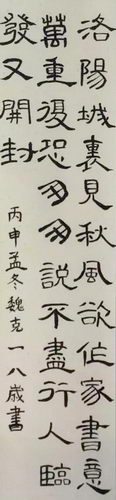 洛陽城裏見秋風欲作家書意
萬重復恐匆匆説不盡行人臨
發又開封
丙申孟冬魏克一八歲書